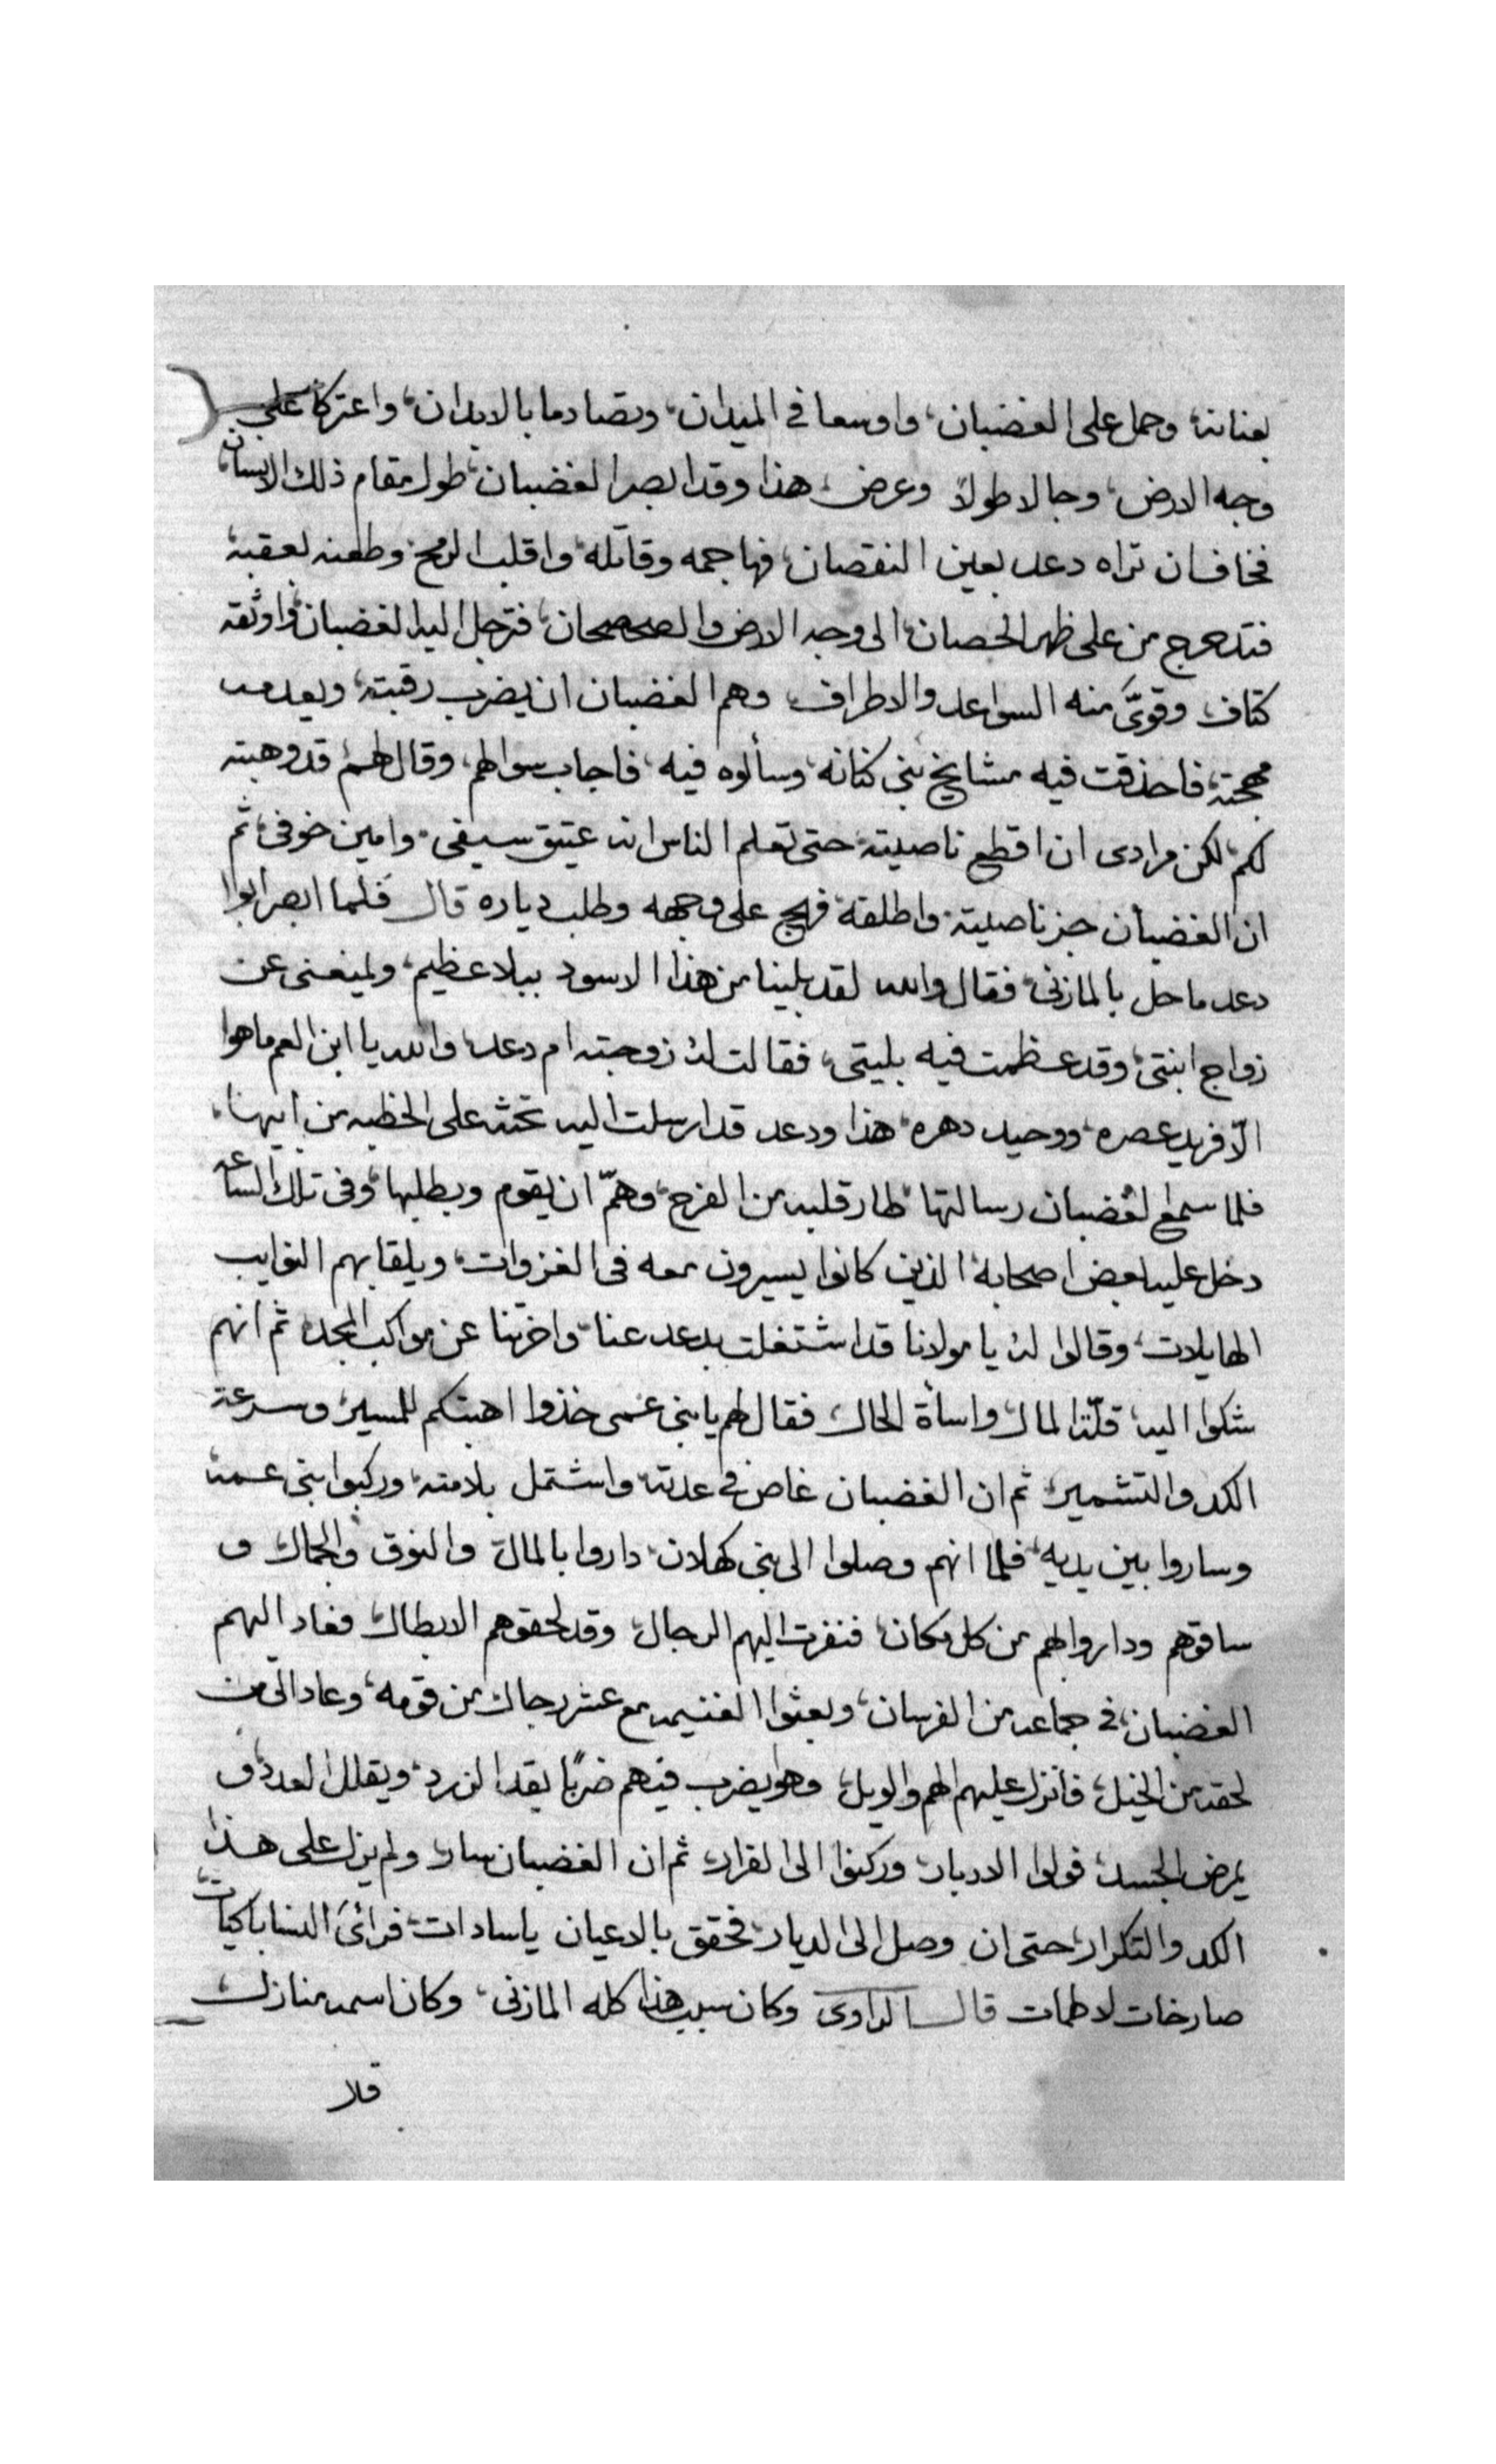 بعنانه، وحمل على الغضبان، واوسعا في الميدان، وتصادما بالابدان، واعتركا على
وجه الارض، وجالا طولاً وعرض، هذا وقد ابصر الغضبان، طول مقام ذلك الانسان،
فخاف ان تراه دعد بعين النقصان، فهاجمه وقاتله، واقلب الرمح، وطعنه بعقبه
فتدحرج من على ظهر الحصان، الى وجه الارض والصحصحان، فترجل اليه الغضبان، واوثقه
كتاف، وقوَّى منه السواعد والاطراف، وهم الغضبان ان يضرب رقبته، ويعدمه
مهجته، فاحذقت فيه مشايخ بنى كنانه، وسألوه فيه، فاجاب سوالهم، وقال لهم قد وهبته
لكم، لكن مرادى ان اقطع ناصيته، حتى تعلم الناس انه عتيق سيفى، وامين خوفى، ثم
ان الغضبان جز ناصيته، واطلقه، فهج على وجهه وطلب دياره قال فلما ابصر ابوا
دعد ما حل بالمازنى، فقال والله لقد بلينا من هذا الاسود ببلا عظيم، ولمنعنى عن
زواج ابنتى، وقد عظمت فيه بليتى، فقالت له زوجته ام دعد، والله يا ابن العم ما هوا
الّا فريد عصره، ووحيد دهره، هذا ودعد قد ارسلت اليه تحثه على الخطبه من ابيها،
فلما سمع الغضبان رسالتها، طار قلبه من الفرح، وهمّ ان يقوم ويطلبها، وفى تلك الساعه
دخل عليه بعض اصحابه الذين كانوا يسيرون معه فى الغزوات، ويلقا بهم النوايب
الهايلات، وقالوا له يا مولانا قد اشتغلت بدعد عنا، واخرتنا عن مواكب المجد، ثم انهم
شكوا اليه، قلّة المال واسأة الحال فقال لهم يا بنى عمى خذوا اهبتكم للمسير، وسرعة
الكد والتشمير، ثم ان الغضبان غاص فى عدته، واشتمل بلامته، وركبوا بنى عمه
وساروا بين يديه، فلما انهم وصلوا الى بنى كهلان، داروا بالمال، والنوق، والجمال و
ساقوهم وداروا بهم من كل مكان، فنفرت اليهم الرجال، وقد لحقوهم الابطال، فعاد اليهم
الغضبان، فى جماعه من الفرسان، وبعثوا الغنيمه مع عشر رجال من قومه، وعاد الى من
لحقه من الخيل، فأنزل عليهم الهم والويل، وهو يضرب فيهم ضربًا يقد الزرد، ويقلل العدد، و
يمرض الجسد، فولوا الادبار، وركنوا الى الفرار، ثم ان الغضبان سار، ولم يزل على هذا
الكد والتكرار، حتى ان وصل الى الديار، فحقق بالاعيان ياسادات، فرائ النسا باكيات،
صارخات لاطمات قال الراوى وكان سبب هذا كله المازنى، وكان اسمه منازل،